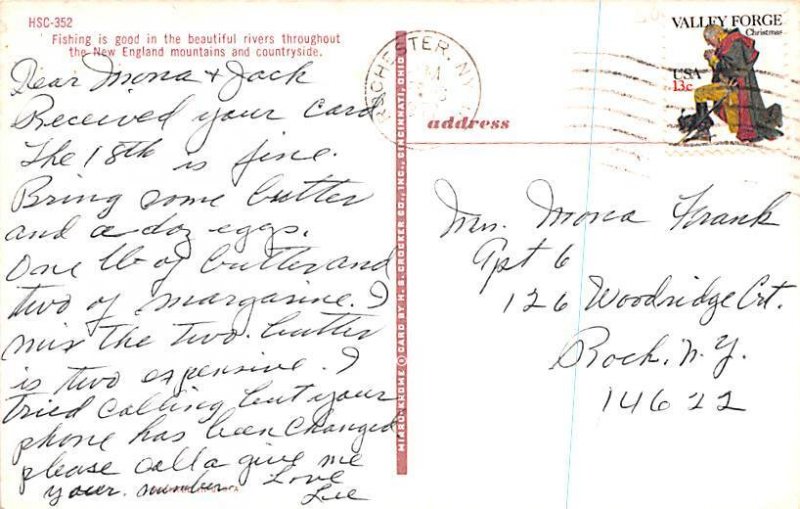 HSC-352
Fishing is good in the beautiful rivers throughout
the New England mountains and countryside.
Dear Mona & Jack
Received your card
The 18th is fine.
Bring some butter
and a doz eggs.
One lb of butter and
two of margarine. I
mix the two. butter
is two expensive. I
tried calling but your
phone has been changed
please call a give me
your number
Love
Lee
MIRRO-KROME ® CARD BY H. S. CROCKER CO., INC., CINCINNATI, OHIO
CHESTER, NY
address
VALLEY FORGE
Christmas
USA
13c
Mrs. Mona Frank
Apt 6
126 Woodridge Crt.
Roch. N.Y.
14622